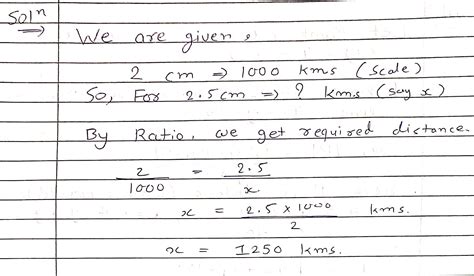 Solⁿ
⇒ We are given,
2 cm ⇒ 1000 kms (scale)
So, For 2.5cm ⇒ ? kms (say x)
By Ratio, we get required distance.
2/1000 = 2.5/x
x = 2.5 x 1000/2 kms.
x = 1250 kms.